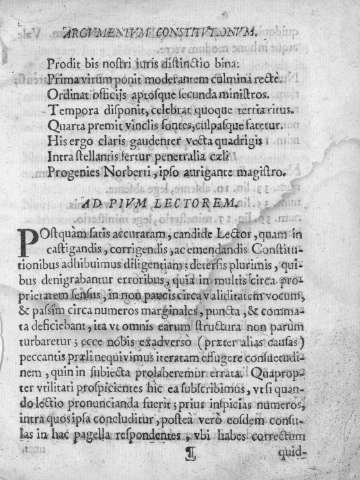 ARGVMENTVM CONSTITVTIONVM.
Prodit bis nostri iuris distinctio bina:
Prima virum ponit moderantem culmina rectè.
Ordinat officijs aptosque secunda ministros.
Tempora disponit, celebrat quoque tertia ritus.
Quarta premit vinclis sontes, culpasque fatetur.
His ergo claris gaudenter vecta quadrigis
Intra stellantis fertur penetralia cæli
Progenies Norberti, ipso aurigante magistro.
AD PIVM LECTOREM.
POstquàm satis accuratam, candide Lector, quam in
castigandis, corrigendis, ac emendandis Constitu-
tionibus adhibuimus diligentiam; detersis plurimis, qui-
bus denigrabantur erroribus, quia in multis circa pro-
prietatem sensus, in non paucis circa validitatem vocum,
& passim circa numeros marginales, puncta, & comma-
ta deficiebant, ita vt omnis earum structura non parùm
turbaretur; ecce nobis exadverso (præter alias causas)
peccantis præli nequivimus iteratam effugere consuetudi-
nem, quin in subiecta prolaberemur errata. Quaprop-
ter vtilitati prospicientes hic ea subscribimus, vt si quan-
do lectio pronuncianda fuerit; prius inspicias numeros,
intra quos ipsa concluditur, postea verò eosdem consu-
las in hac pagella respondentes, vbi habes correctum
¶ quid-